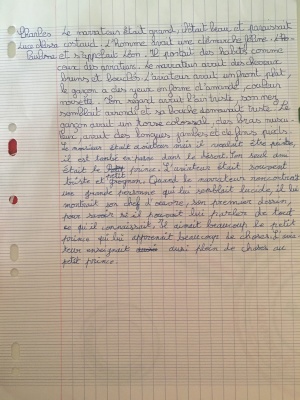 Charles. Le narrateur était grand, était beau et paraissait
costaud. L'homme avait une chemise
et s'appelait Léon. Il portait des habits comme
ceux des aviateurs. Le narrateur avait des cheveux
bruns et bouclés. L'aviateur avait un front plat,
le garçon a des yeux en forme d'amande, couleur
noisette. Son regard avait l'air triste, son nez
semblait arrondi et sa bouche demeurait triste. Le
garçon avait un torse colossal, des bras
avait des longues jambes et de fins pieds.
Le monsieur était aviateur mais il voulait être peintre,
il est tombé en panne dans le désert. Son seul ami
était le petit prince. L'aviateur était souvent
triste et grognon. Quand le narrateur rencontrait
une grande personne qui lui semblait lucide, il lui
montrait son chef d'oeuvre, son premier dessin,
pour savoir si il pouvait lui parler de tout
ce qu'il connaissait. Il aimait beaucoup le petit
prince qui lui apprenait beaucoup de choses.
enseignait aussi plein de choses au
petit prince.